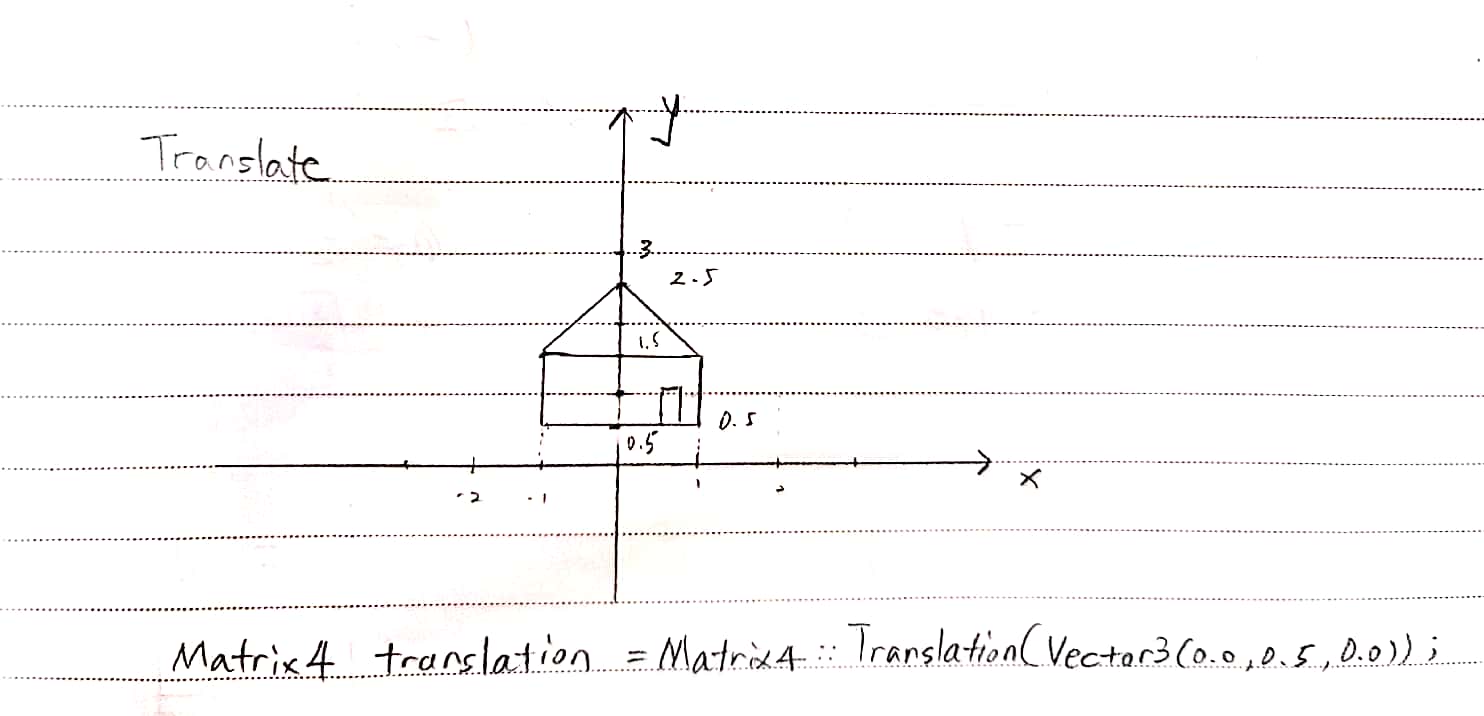 y
Translate
3
2.5
1.5
0.5
0.5
x
-2 -1 1
Matrix4 translation = Matrix4::Translation(Vector3(0.0,0.5,0.0));